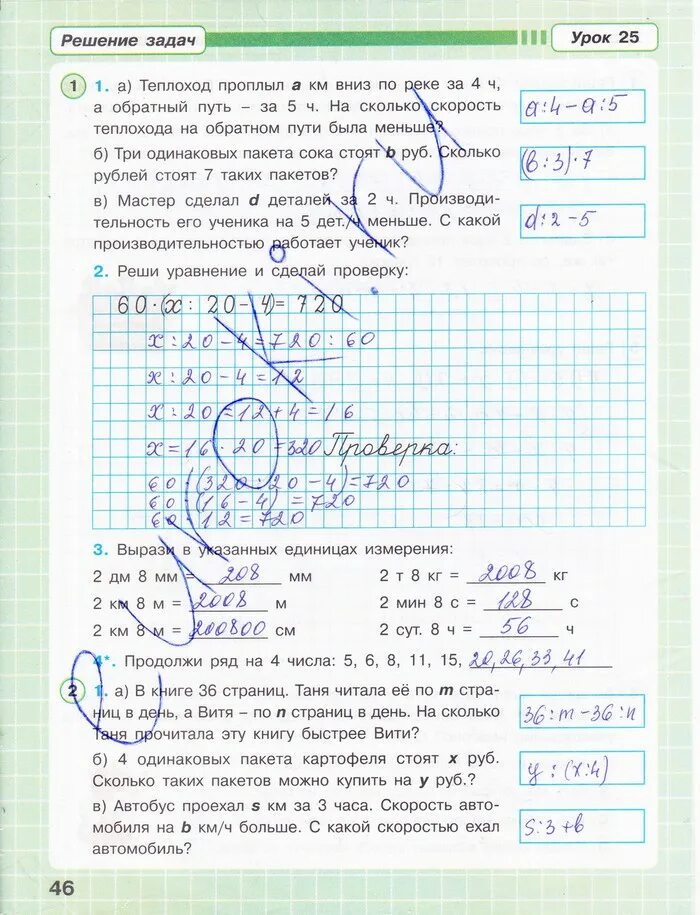 Решение задач
Урок 25
1 1. а) Теплоход проплыл a км вниз по реке за 4 ч,
а обратный путь – за 5 ч. На сколько скорость
теплохода на обратном пути была меньше?
a:4–a:5
б) Три одинаковых пакета сока стоят b руб. Сколько
рублей стоят 7 таких пакетов?
(b:3)·7
в) Мастер сделал d деталей за 2 ч. Производи-
тельность его ученика на 5 дет./ч меньше. С какой
производительностью работает ученик?
d:2–5
2. Реши уравнение и сделай проверку:
60·(x:20–4)=720
x:20–4=720:60
x:20–4=12
x:20=12+4=16
x=16·20=320 Проверка:
60·(320:20–4)=720
60·(16–4)=720
60·12=720
3. Вырази в указанных единицах измерения:
2 дм 8 мм = 208 мм 2 т 8 кг = 2008 кг
2 км 8 м = 2008 м 2 мин 8 с = 128 с
2 км 8 м = 200800 см 2 сут. 8 ч = 56 ч
4*. Продолжи ряд на 4 числа: 5, 6, 8, 11, 15, 20,26,33,41
2 1. а) В книге 36 страниц. Таня читала её по m стра-
ниц в день, а Витя – по n страниц в день. На сколько
Таня прочитала эту книгу быстрее Вити?
36:m–36:n
б) 4 одинаковых пакета картофеля стоят x руб.
Сколько таких пакетов можно купить на y руб.?
y:(x:4)
в) Автобус проехал s км за 3 часа. Скорость авто-
мобиля на b км/ч больше. С какой скоростью ехал
автомобиль?
s:3+b
46